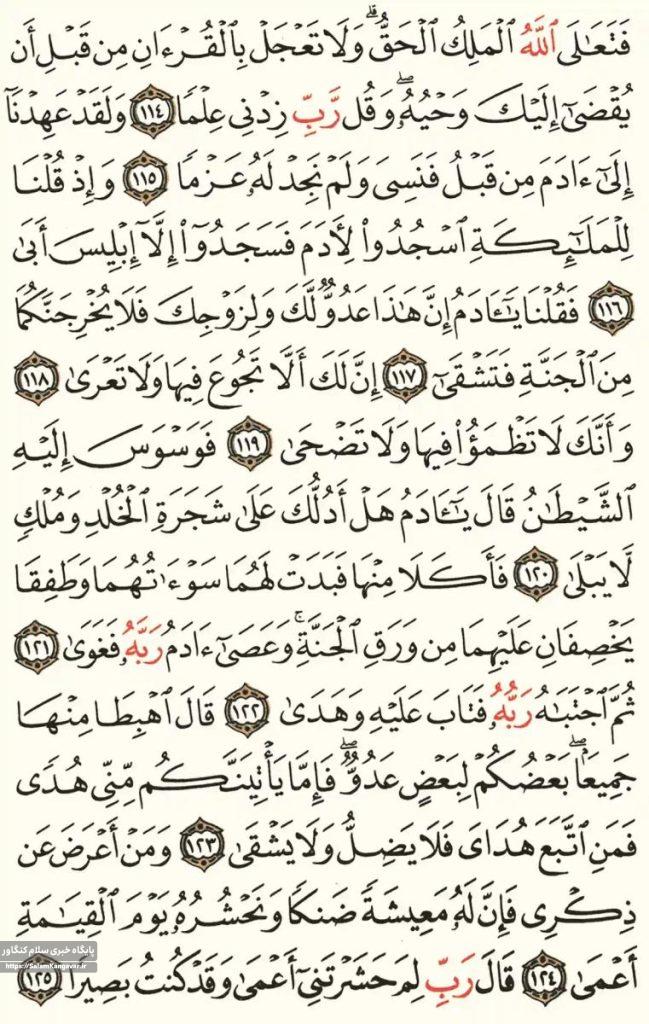 فَتَعَٰلَى ٱللَّهُ ٱلْمَلِكُ ٱلْحَقُّ ۗ وَلَا تَعْجَلْ بِٱلْقُرْءَانِ مِن قَبْلِ أَن
يُقْضَىٰٓ إِلَيْكَ وَحْيُهُۥ ۖ وَقُل رَّبِّ زِدْنِى عِلْمًا ﴿١١٤﴾ وَلَقَدْ عَهِدْنَآ
إِلَىٰٓ ءَادَمَ مِن قَبْلُ فَنَسِىَ وَلَمْ نَجِدْ لَهُۥ عَزْمًا ﴿١١٥﴾ وَإِذْ قُلْنَا
لِلْمَلَٰٓئِكَةِ ٱسْجُدُوا۟ لِـَٔادَمَ فَسَجَدُوٓا۟ إِلَّآ إِبْلِيسَ أَبَىٰ
﴿١١٦﴾ فَقُلْنَا يَٰٓـَٔادَمُ إِنَّ هَٰذَا عَدُوٌّ لَّكَ وَلِزَوْجِكَ فَلَا يُخْرِجَنَّكُمَا
مِنَ ٱلْجَنَّةِ فَتَشْقَىٰٓ ﴿١١٧﴾ إِنَّ لَكَ أَلَّا تَجُوعَ فِيهَا وَلَا تَعْرَىٰ ﴿١١٨﴾
وَأَنَّكَ لَا تَظْمَؤُا۟ فِيهَا وَلَا تَضْحَىٰ ﴿١١٩﴾ فَوَسْوَسَ إِلَيْهِ
ٱلشَّيْطَٰنُ قَالَ يَٰٓـَٔادَمُ هَلْ أَدُلُّكَ عَلَىٰ شَجَرَةِ ٱلْخُلْدِ وَمُلْكٍ
لَّا يَبْلَىٰ ﴿١٢٠﴾ فَأَكَلَا مِنْهَا فَبَدَتْ لَهُمَا سَوْءَٰتُهُمَا وَطَفِقَا
يَخْصِفَانِ عَلَيْهِمَا مِن وَرَقِ ٱلْجَنَّةِ ۚ وَعَصَىٰٓ ءَادَمُ رَبَّهُۥ فَغَوَىٰ ﴿١٢١﴾
ثُمَّ ٱجْتَبَٰهُ رَبُّهُۥ فَتَابَ عَلَيْهِ وَهَدَىٰ ﴿١٢٢﴾ قَالَ ٱهْبِطَا مِنْهَا
جَمِيعًۢا ۖ بَعْضُكُمْ لِبَعْضٍ عَدُوٌّ ۖ فَإِمَّا يَأْتِيَنَّكُم مِّنِّى هُدًى
فَمَنِ ٱتَّبَعَ هُدَاىَ فَلَا يَضِلُّ وَلَا يَشْقَىٰ ﴿١٢٣﴾ وَمَنْ أَعْرَضَ عَن
ذِكْرِى فَإِنَّ لَهُۥ مَعِيشَةً ضَنكًا وَنَحْشُرُهُۥ يَوْمَ ٱلْقِيَٰمَةِ
أَعْمَىٰ ﴿١٢٤﴾ قَالَ رَبِّ لِمَ حَشَرْتَنِىٓ أَعْمَىٰ وَقَدْ كُنتُ بَصِيرًا ﴿١٢٥﴾
پایگاه خبری سلام کنگاور
https://SalamKangavar.ir